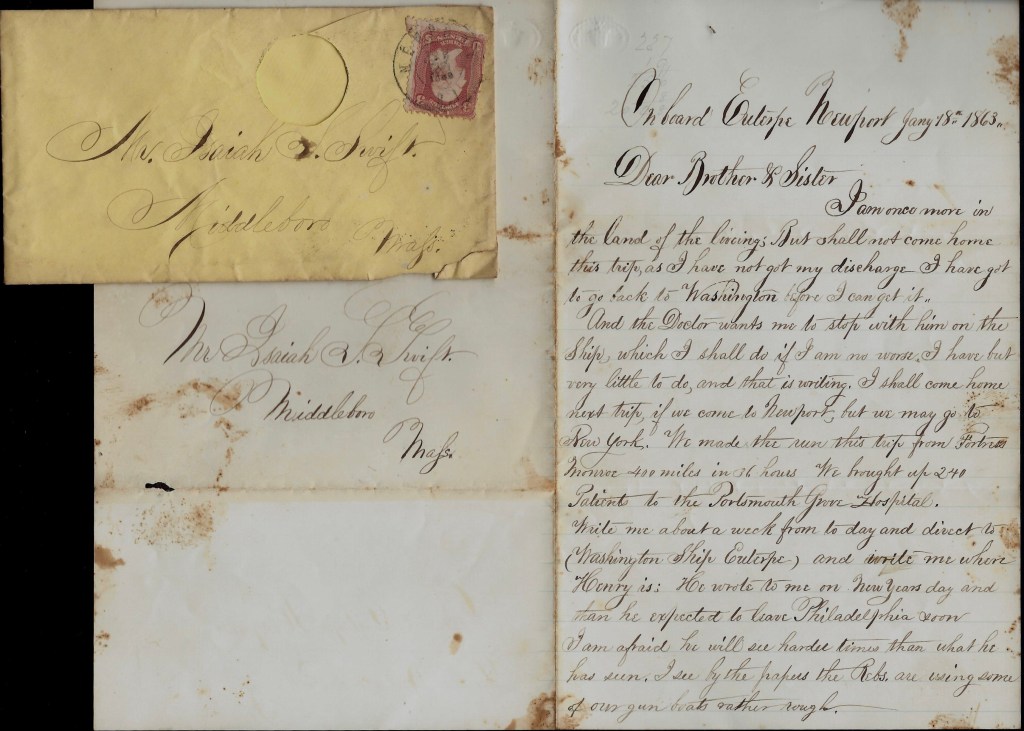 Mr. Isaiah L. Swift.
Middleboro
Mass.
Mr Isaiah L. Swift.
Middleboro
Mass.
On board Euterpe Newport Jany 18th 1863.
Dear Brother & Sister
I am once more in
the land of the liveing; But shall not come home
this trip, as I have not got my discharge I have got
to go back to Washington before I can get it..
And the Doctor wants me to stop with him on the
Ship, which I shall do if I am no worse. I have but
very little to do, and that is writing. I shall come home
next trip, if we come to Newport, but we may go to
New York. We made the run this trip from Fortress
Monroe 400 miles in 36 hours We brought up 240
Patient to the Portsmouth Grove Hospital.
Write me about a week from to day and direct to
(Washington Ship Euterpe) and write me where
Henry is: He wrote to me on New Years day and
than he expected to leave Philadelphia soon
I am afraid he will see harder times than what he
has seen. I see by the papers the Rebs. are using some
of our gun boats rather rough.